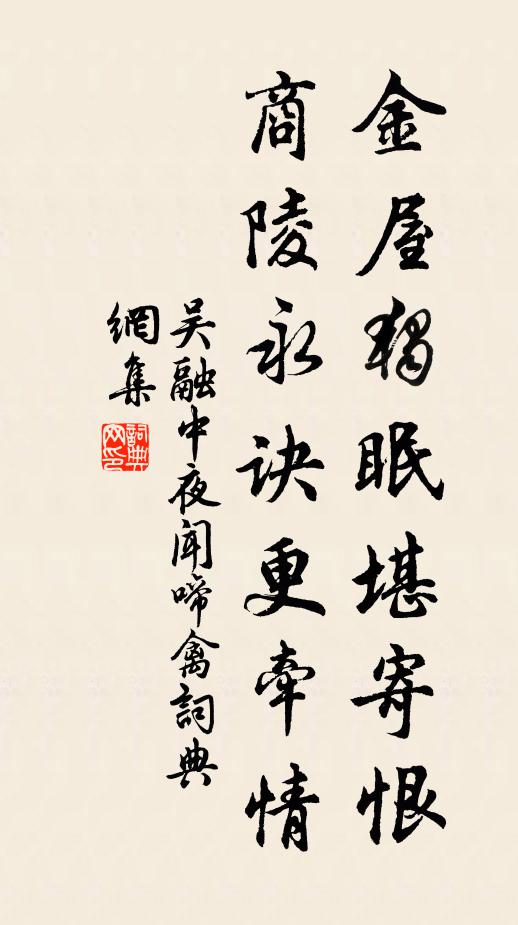 金屋獨眠堪寄恨
商陵永诀更牽情
吴融中夜闻啼禽詞典
網集
詞典
网印